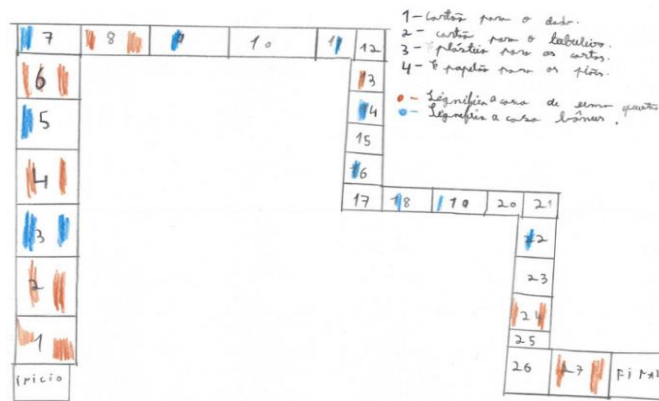 1 - cartão para o dado.
2 - cartão para o tabuleiro.
3 - plástico para os cartas.
4 - papelão para os piões.
- Significa a casa de uma
- Significa a casa bônus.
7 8 10 11 12
6 13
5 14
4 15
3 16
2 17 18 19 20 21
1 22
início 23
24
25
26 27 FINAL